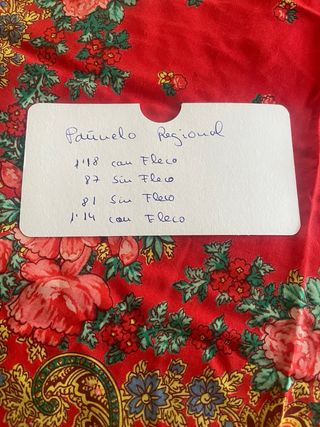 Pañuelo Regional
1'18 con Fleco
87 Sin Fleco
81 Sin Fleco
1'14 con Fleco